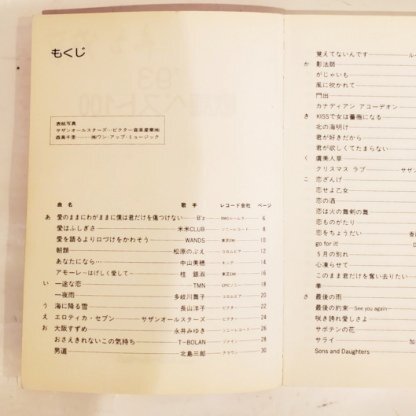 もくじ
表紙写真
サザンオールスターズ・ビクター音楽産業㈱
西島千里・㈱ワン・アップ・ミュージック
曲名 歌手 レコード会社 ページ
あ 愛のままにわがままに僕は君だけを傷つけない B'z 6
愛はふしぎさ 米米CLUB 8
愛を語るより口づけをかわそう WANDS 10
朝顔 松原のぶえ 12
あなたになら… 中山美穂 14
アモーレ〜はげしく愛して〜 桂銀淑 16
い 一途な恋 TMN 18
一夜雨 多岐川舞子 20
う 海に降る雪 長山洋子 22
え エロティカ・セブン サザンオールスターズ ビクター 24
お 大阪すずめ 永井みゆき 26
おさえきれないこの気持ち T-BOLAN 28
男道 北島三郎 クラウン 30
覚えてないんです
か 影法師
がじゃいも
風に吹かれて
門出
カナディアン アコーデオン
き KISSで女は薔薇になる
北の海明け
君が好きだから
君が欲しくてたまらない
く 虞美人草
クリスマス ラブ サザンオー
こ 恋ざんげ
恋せよ乙女
恋の酒
恋は火の舞剣の舞
恋ものがたり
恋をちょうだい
go for it!
5月の別れ
心凍らせて
このまま君だけを奪い去りたい
さ 最後の雨
最後の約束 See you again
咲き誇れ愛しさよ
サボテンの花
サライ 加
Sons and Daughters